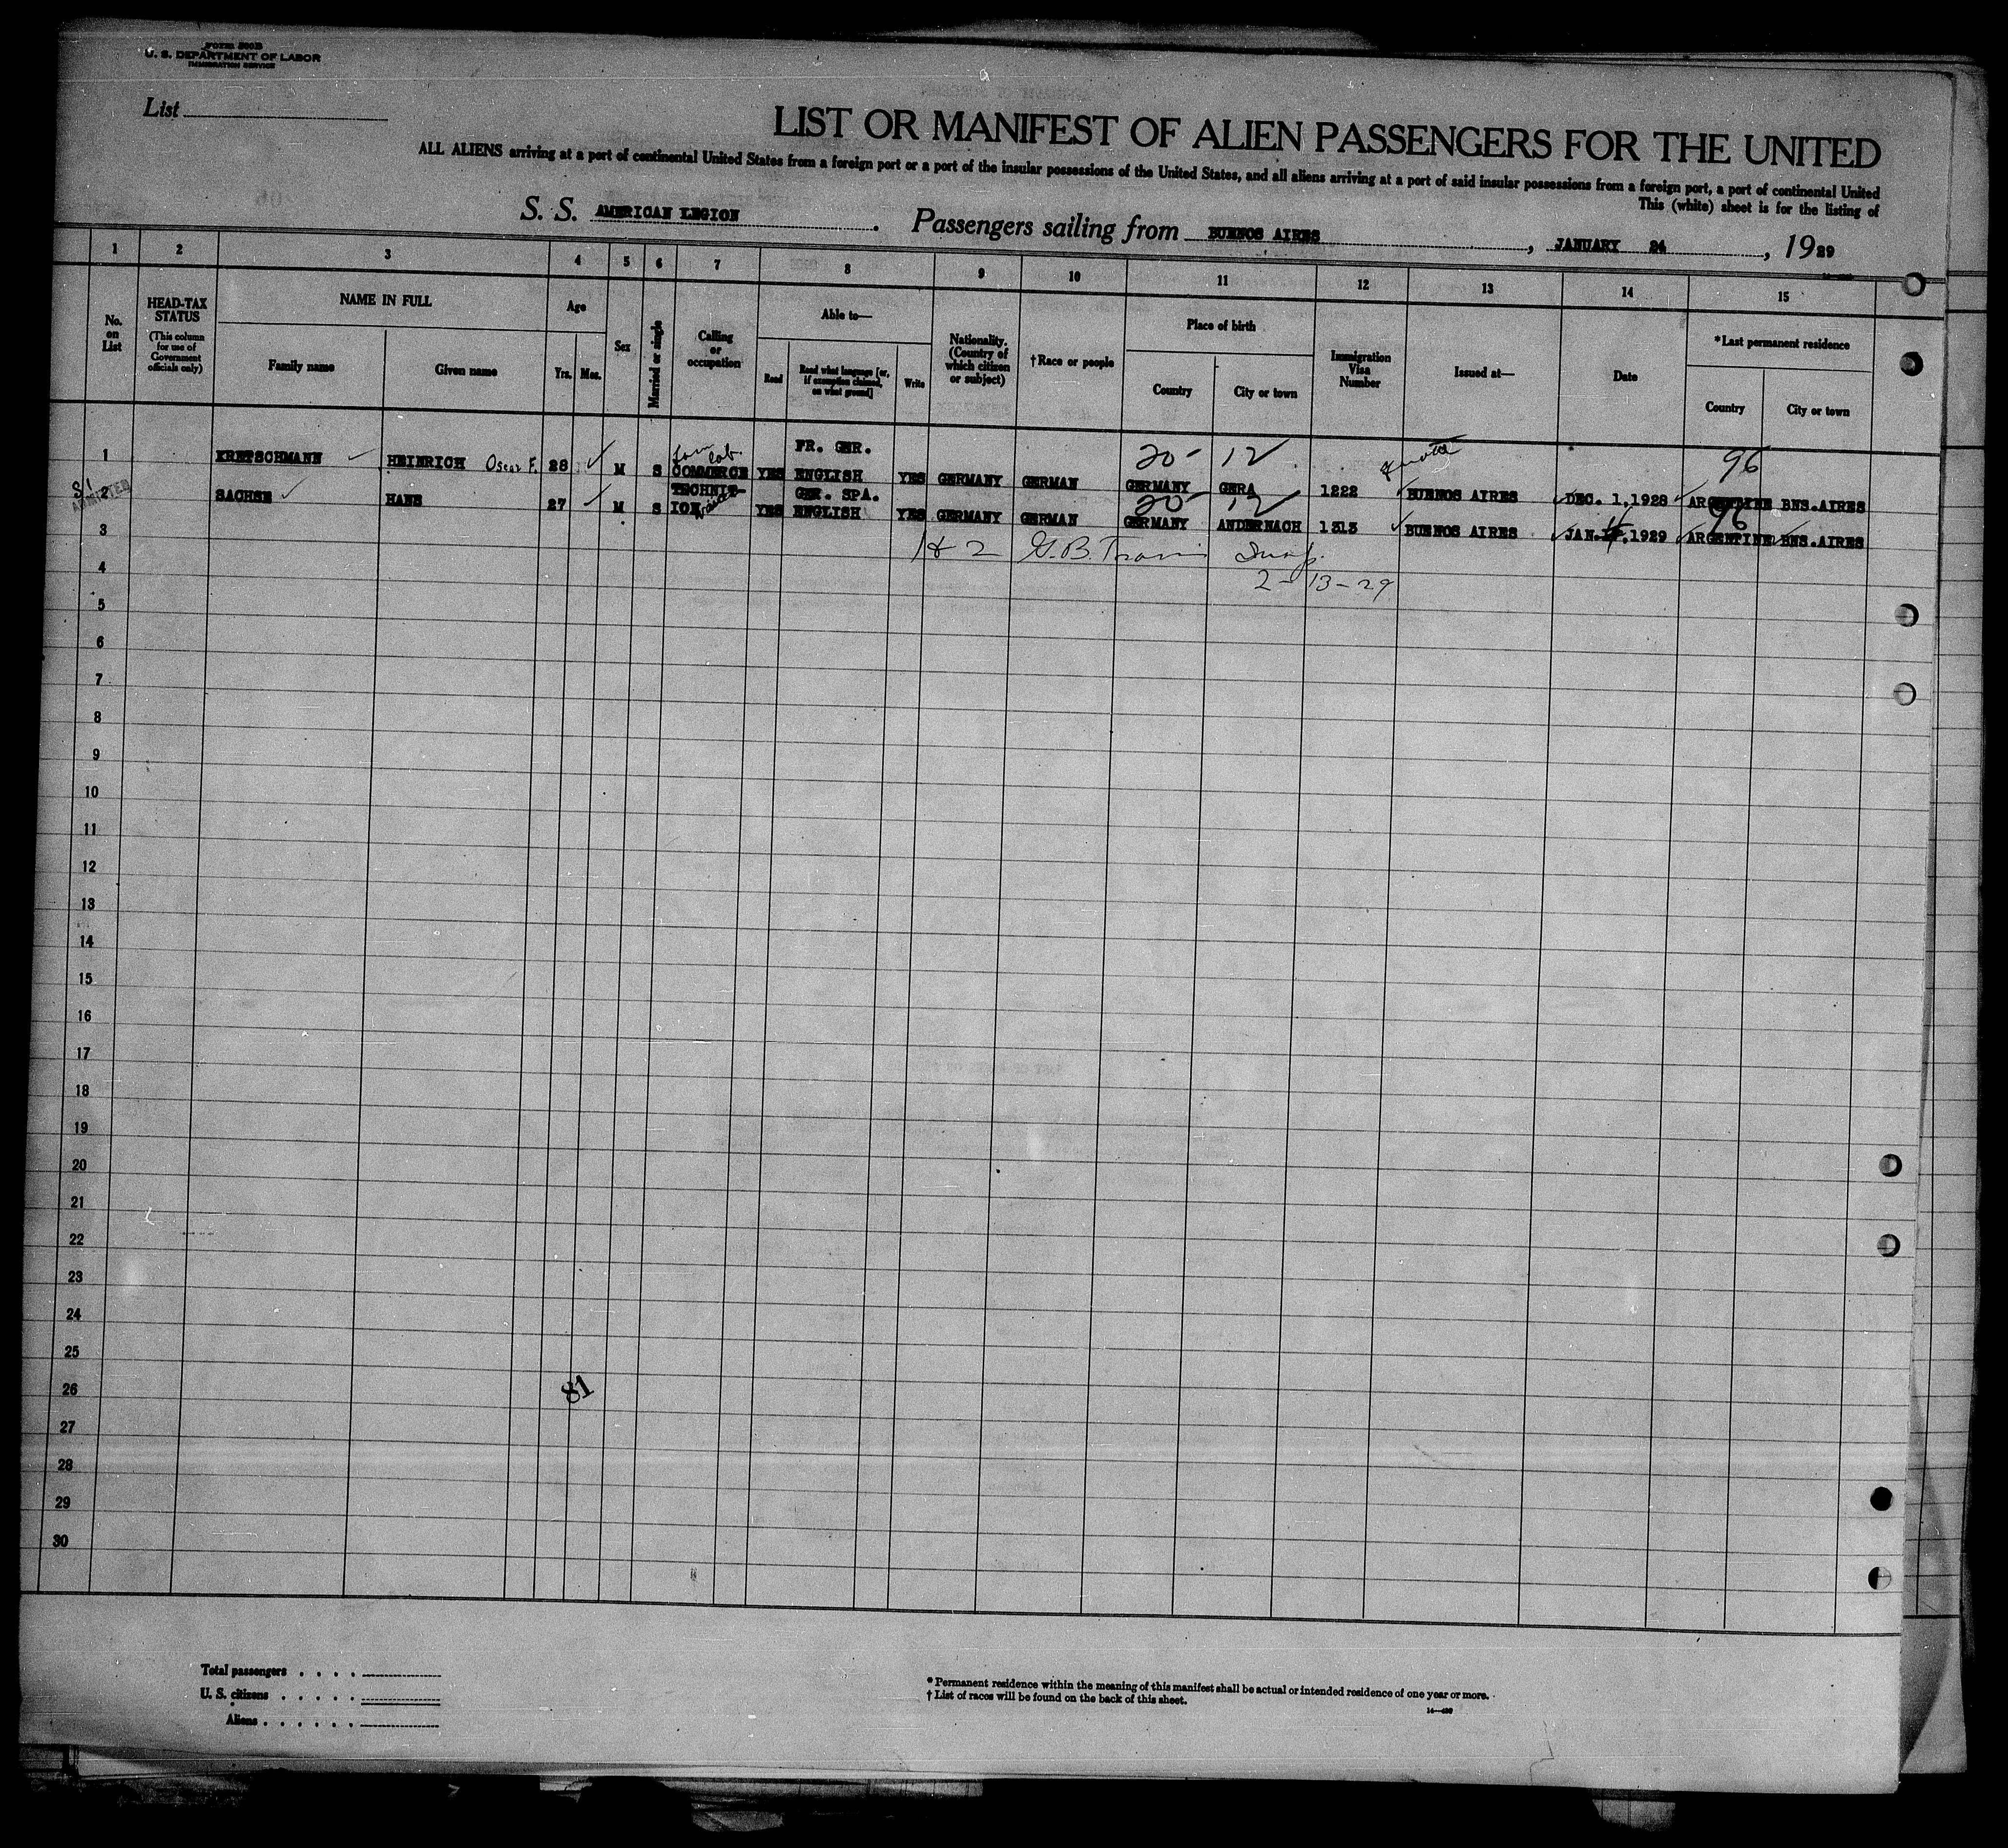 FORM 500B
U. S. DEPARTMENT OF LABOR
IMMIGRATION SERVICE
List
LIST OR MANIFEST OF ALIEN PASSENGERS FOR THE UNITED
ALL ALIENS arriving at a port of continental United States from a foreign port or a port of the insular possessions of the United States, and all aliens arriving at a port of said insular possessions from a foreign port, a port of continental United
This (white) sheet is for the listing of
S. S. AMERICAN LEGION. Passengers sailing from BUENOS AIRES, JANUARY 24, 1929
1 2 3 4 5 6 7 8 9 10 11 12 13 14 15
No. on List
HEAD-TAX STATUS
(This column for use of Government officials only)
NAME IN FULL
Family name
Given name
Age
Yrs.
Mos.
Sex
Married or single
Calling or occupation
Able to—
Read
Read what language [or, if exemption claimed, on what ground]
Write
Nationality. (Country of which citizen or subject)
†Race or people
Place of birth
Country
City or town
Immigration Visa Number
Issued at—
Date
*Last permanent residence
Country
City or town
20- 12 quota 96
1 KRETSCHMANN HEINRICH Oscar F. 28 M S COMMERCE YES FR. GER. ENGLISH YES GERMANY GERMAN GERMANY GERA 1222 BUENOS AIRES DEC. 1,1928 ARGENTINE BNS.AIRES
20- 12 96
S1 ADMITTED
2 SACHSE HANS 27 M S TECHNIC- ION YES GER. SPA. ENGLISH YES GERMANY GERMAN GERMANY ANDERNACH 1313 BUENOS AIRES JAN. ,1929 ARGENTINE BNS.AIRES
3
1 & 2 G.B. Travis Insp.
2-13-29
4
5
6
7
8
9
10
11
12
13
14
15
16
17
18
19
20
21
22
23
24
25
26
81
27
28
29
30
Total passengers . . . .
U. S. citizens . . . . .
Aliens . . . . . .
* Permanent residence within the meaning of this manifest shall be actual or intended residence of one year or more.
† List of races will be found on the back of this sheet.